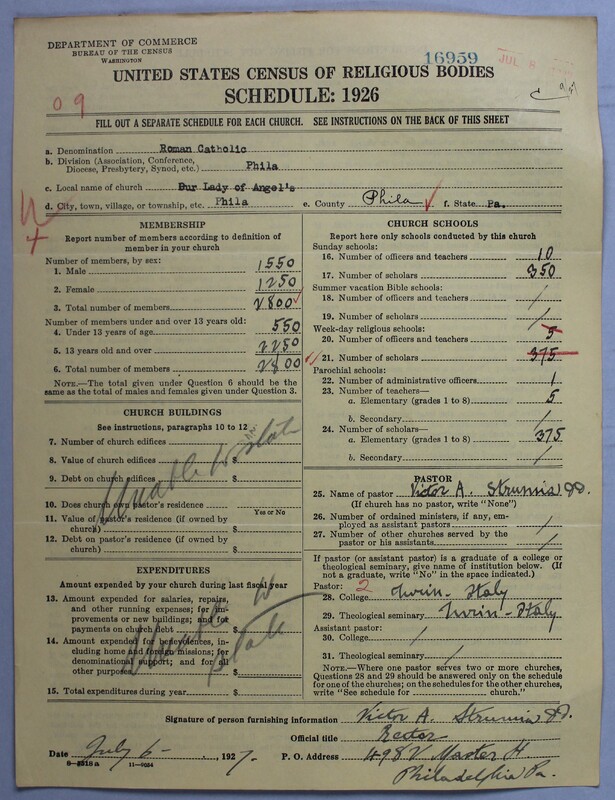 DEPARTMENT OF COMMERCE
BUREAU OF THE CENSUS
WASHINGTON
16959
JUL 8
UNITED STATES CENSUS OF RELIGIOUS BODIES
SCHEDULE: 1926
0 9
FILL OUT A SEPARATE SCHEDULE FOR EACH CHURCH. SEE INSTRUCTIONS ON THE BACK OF THIS SHEET
a. Denomination Roman Catholic
b. Division (Association, Conference,
Diocese, Presbytery, Synod, etc.) Phila
c. Local name of church Our Lady of Angel's
d. City, town, village, or township, etc. Phila e. County Phila f. State Pa.
MEMBERSHIP
Report number of members according to definition of
member in your church
Number of members, by sex:
1. Male 1550
2. Female 1250
3. Total number of members 2800
Number of members under and over 13 years old:
4. Under 13 years of age 550
5. 13 years old and over 2250
6. Total number of members 2800
NOTE.—The total given under Question 6 should be the
same as the total of males and females given under Question 3.
CHURCH BUILDINGS
See instructions, paragraphs 10 to 12
7. Number of church edifices
8. Value of church edifices $
9. Debt on church edifices $
Unable to state
10. Does church own pastor's residence
Yes or No
11. Value of pastor's residence (if owned by
church) $
12. Debt on pastor's residence (if owned by
church) $
EXPENDITURES
Amount expended by your church during last fiscal year
13. Amount expended for salaries, repairs,
and other running expenses; for im-
provements or new buildings; and for
payments on church debt $
Unable to state
14. Amount expended for benevolences, in-
cluding home and foreign missions; for
denominational support; and for all
other purposes $
15. Total expenditures during year $
CHURCH SCHOOLS
Report here only schools conducted by this church
Sunday schools:
16. Number of officers and teachers 10
17. Number of scholars 350
Summer vacation Bible schools:
18. Number of officers and teachers /
19. Number of scholars /
Week-day religious schools:
20. Number of officers and teachers 5
21. Number of scholars 375
Parochial schools:
22. Number of administrative officers 1
23. Number of teachers—
a. Elementary (grades 1 to 8) 5
b. Secondary /
24. Number of scholars—
a. Elementary (grades 1 to 8) 375
b. Secondary /
PASTOR
25. Name of pastor Victor A. Strumia
(If church has no pastor, write "None")
26. Number of ordained ministers, if any, em-
ployed as assistant pastors /
27. Number of other churches served by the
pastor or his assistants /
If pastor (or assistant pastor) is a graduate of a college or
theological seminary, give name of institution below. (If
not a graduate, write "No" in the space indicated.)
Pastor: 2
28. College Turin - Italy
29. Theological seminary Turin - Italy
Assistant pastor:
30. College /
31. Theological seminary /
NOTE.—Where one pastor serves two or more churches,
Questions 28 and 29 should be answered only on the schedule
for one of the churches; on the schedules for the other churches,
write "See schedule for church."
Signature of person furnishing information Victor A. Strumia
Official title Rector
Date July 6 - , 1927. P. O. Address 498 Master
8-2518a 11-9024 Philadelphia Pa.